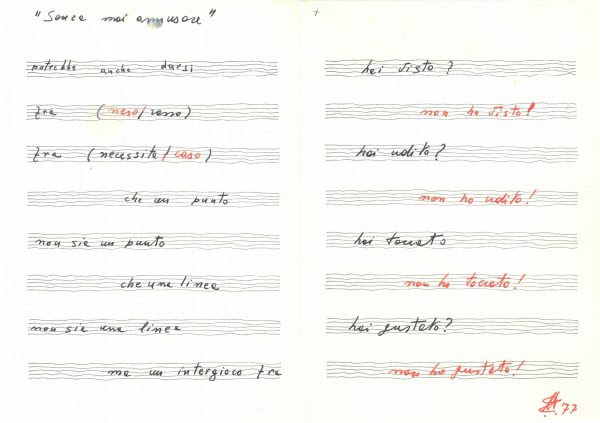 "Senza mai annusare"
potrebbe anche darsi
fra (nero/rosso)
fra (necessità/caso)
che un punto
non sia un punto
che una linea
non sia una linea
ma un intergioco fra
hai visto?
non ho visto!
hai udito?
non ho udito!
hai toccato
non ho toccato!
hai gustato?
non ho gustato!
77